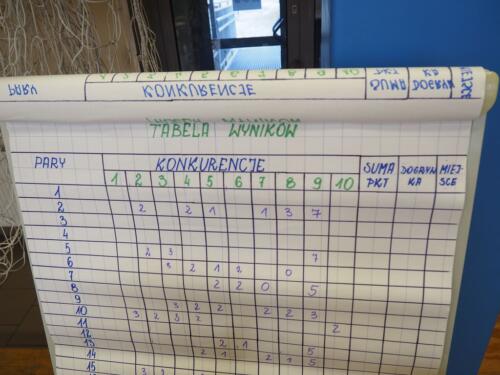 PARY KONKURENCJE SUMA PKT DOGRYWKA MIEJSCE
TABELA WYNIKÓW
PARY KONKURENCJE SUMA PKT DOGRYWKA MIEJSCE
1 2 3 4 5 6 7 8 9 10
1
2 2 2 1 1 3 7
3
4
5 2 3 7
6 3 2 1 2 0
7
8 2 2 0 5
9
10 3 2 2 2 2 3
11 3 2 3 2
12 2
13 2 1 5
14 2 1 2 1 5
15 3